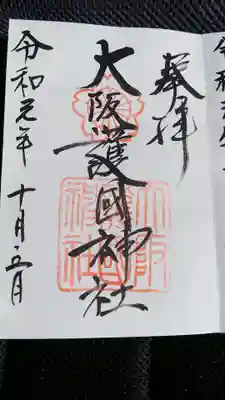 奉拝
大阪護國神社
令和元年 十月五日